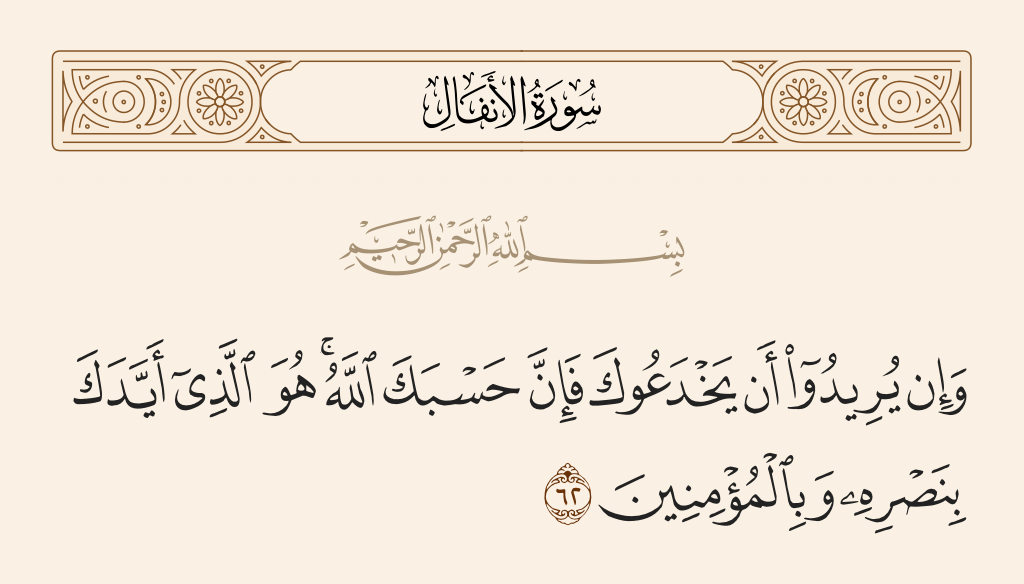 سُورَةُ الأَنفَالِ
بِسْمِ ٱللَّهِ ٱلرَّحْمَٰنِ ٱلرَّحِيمِ
وَإِن يُرِيدُوٓا۟ أَن يَخْدَعُوكَ فَإِنَّ حَسْبَكَ ٱللَّهُ ۚ هُوَ ٱلَّذِىٓ أَيَّدَكَ
بِنَصْرِهِۦ وَبِٱلْمُؤْمِنِينَ ٦٢